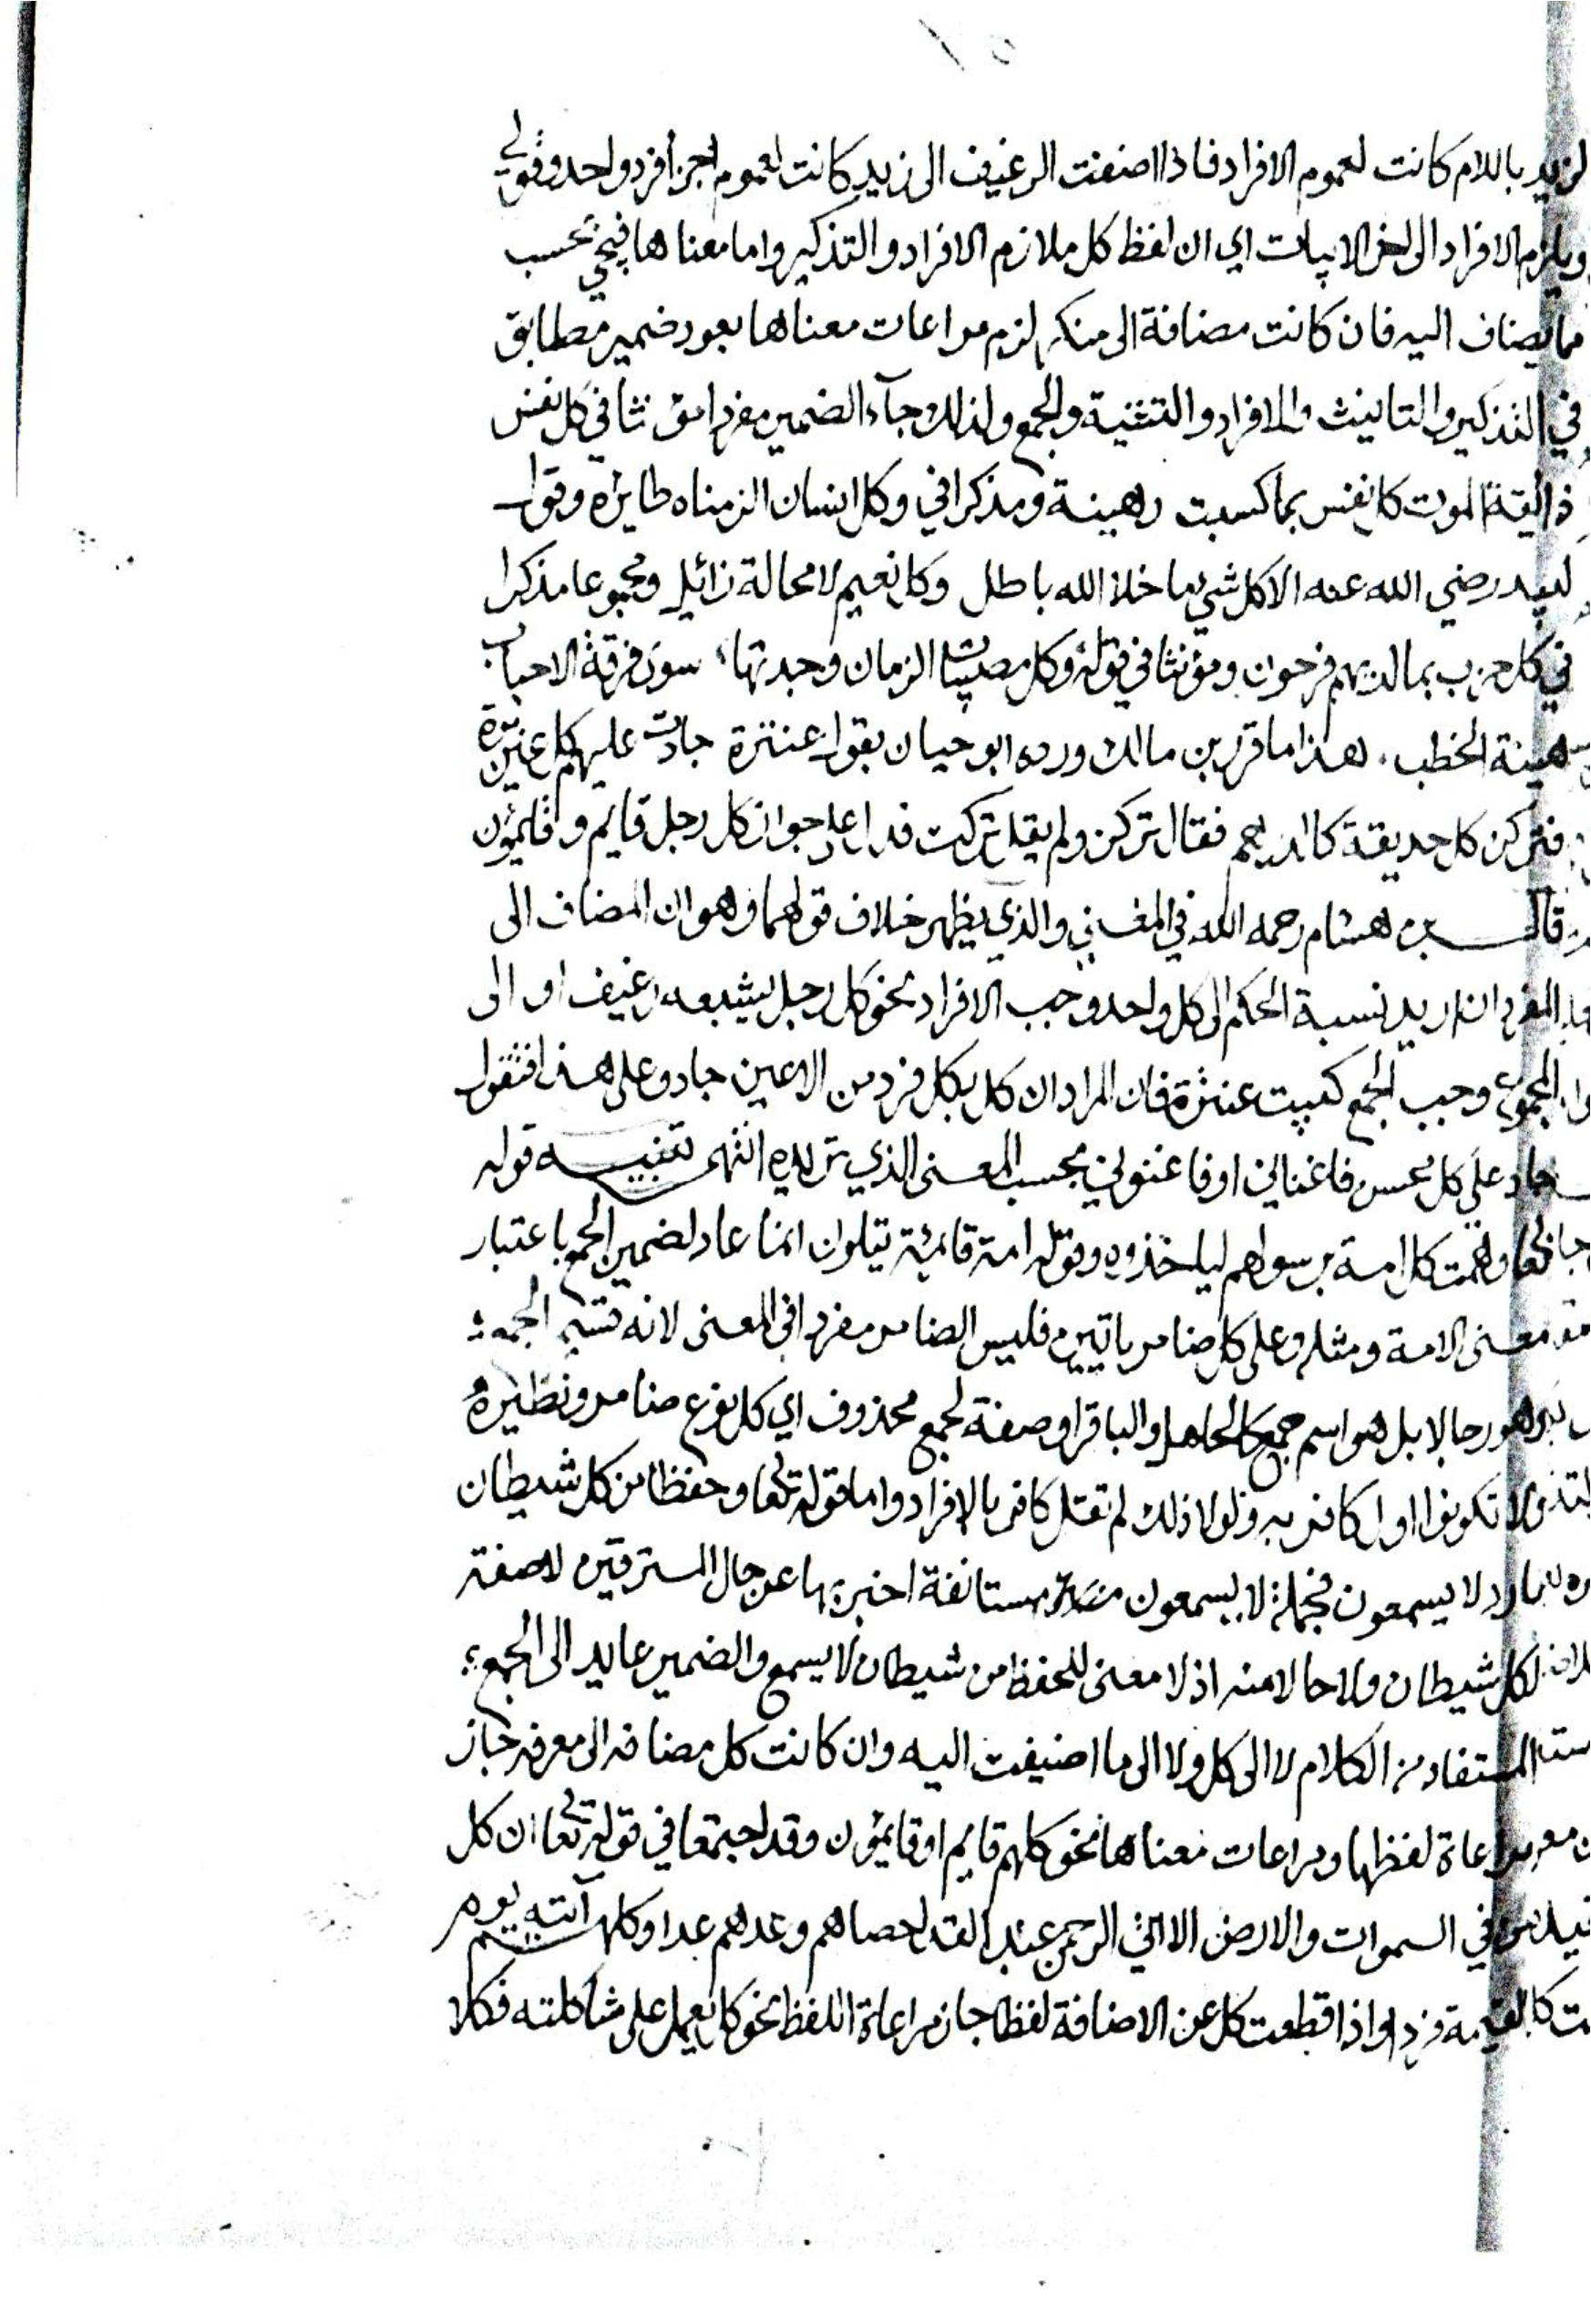 لزيد باللام كانت لعموم الافراد فاذا اضفت الرغيف الى زيد كانت لعموم اجزا فرد واحد وقولي
ويلزم الافراد الى اخر الابيات اي ان لفظ كل ملازم الافراد والتذكير واما معناها فيجي بحسب
ما يضاف اليه فان كانت مضافة الى منكر لزم مراعات معناها بعود ضمير مطابق
في التذكير والتانيث والافراد والتثنية والجمع ولذلك جآء الضمير مفردا مؤنثا في كل نفس
ذائقة الموت كل نفس بما كسبت رهينة ومذكرا في وكل انسان الزمناه طايره وقول
لبيد رضي الله عنه الا كل شي ما خلا الله باطل وكل نعيم لا محالة زائل ومجموعا مذكرا
في كل حزب بما لديهم فرحون ومؤنثا في قوله وكل مصيبات الزمان وجدتها سوى فرقة الاحباب
هينة الخطب . هذا ما قرر بن مالك ورده ابو حيان بقول عنترة جادت عليه كل عين ثرة
فتركن كل حديقة كالدرهم فقال تركن ولم يقل تركت فدل على جواز كل رجل قايم وقايمون
قال بن هشام رحمه الله في المغني والذي يظهر خلاف قولهما وهو ان المضاف الى
المفرد ان اريد نسبة الحكم الى كل واحد وجب الافراد نحو كل رجل يشبعه رغيف او الى
المجموع وجب الجمع كبيت عنترة فان المراد ان كل فرد من الاعين جاد وعلى هذا فتقول
جاد علي كل محسن فاغناني او فاغنوني بحسب المعنى الذي تريده انتهى تنبيه قوله
تعا وهمت كل امة برسولهم لياخذوه وقوله امة قائمة يتلون انما عاد لضمير الجمع باعتبار
معنى الامة ومثله وعلى كل ضامر ياتين فليس الضامر مفردا في المعنى لانه قسيم الجمع
وهو رجالا بل هو اسم جمع كالجامل والباقر او صفة لجمع محذوف اي كل نوع ضامر ونظيره
لا تكونوا اول كافر به ولولا ذلك لم تقل كافر بالافراد واما قوله تعا وحفظا من كل شيطان
مارد لا يسمعون فجملة لا يسمعون مستانفة اخبر بها عن حال المسترقين لا صفة
لكل شيطان ولا حالا منه اذ لا معنى للحفظ من شيطان لا يسمع والضمير عايد الى الجمع
المستفاد من الكلام لا الى كل ولا الى ما اضيفت اليه وان كانت كل مضافه الى معرفه جاز
مراعاة لفظها ومراعات معناها نحو كلهم قايم او قايمون وقد اجتمعا في قوله تعا ان كل
من في السموات والارض الا اتي الرحمن عبدا لقد احصاهم وعدهم عدا وكلهم آتيه يوم
القيمة فردا واذا قطعت كل عن الاضافة لفظا جاز مراعاة اللفظ نحو كل يعمل على شاكلته فكلا